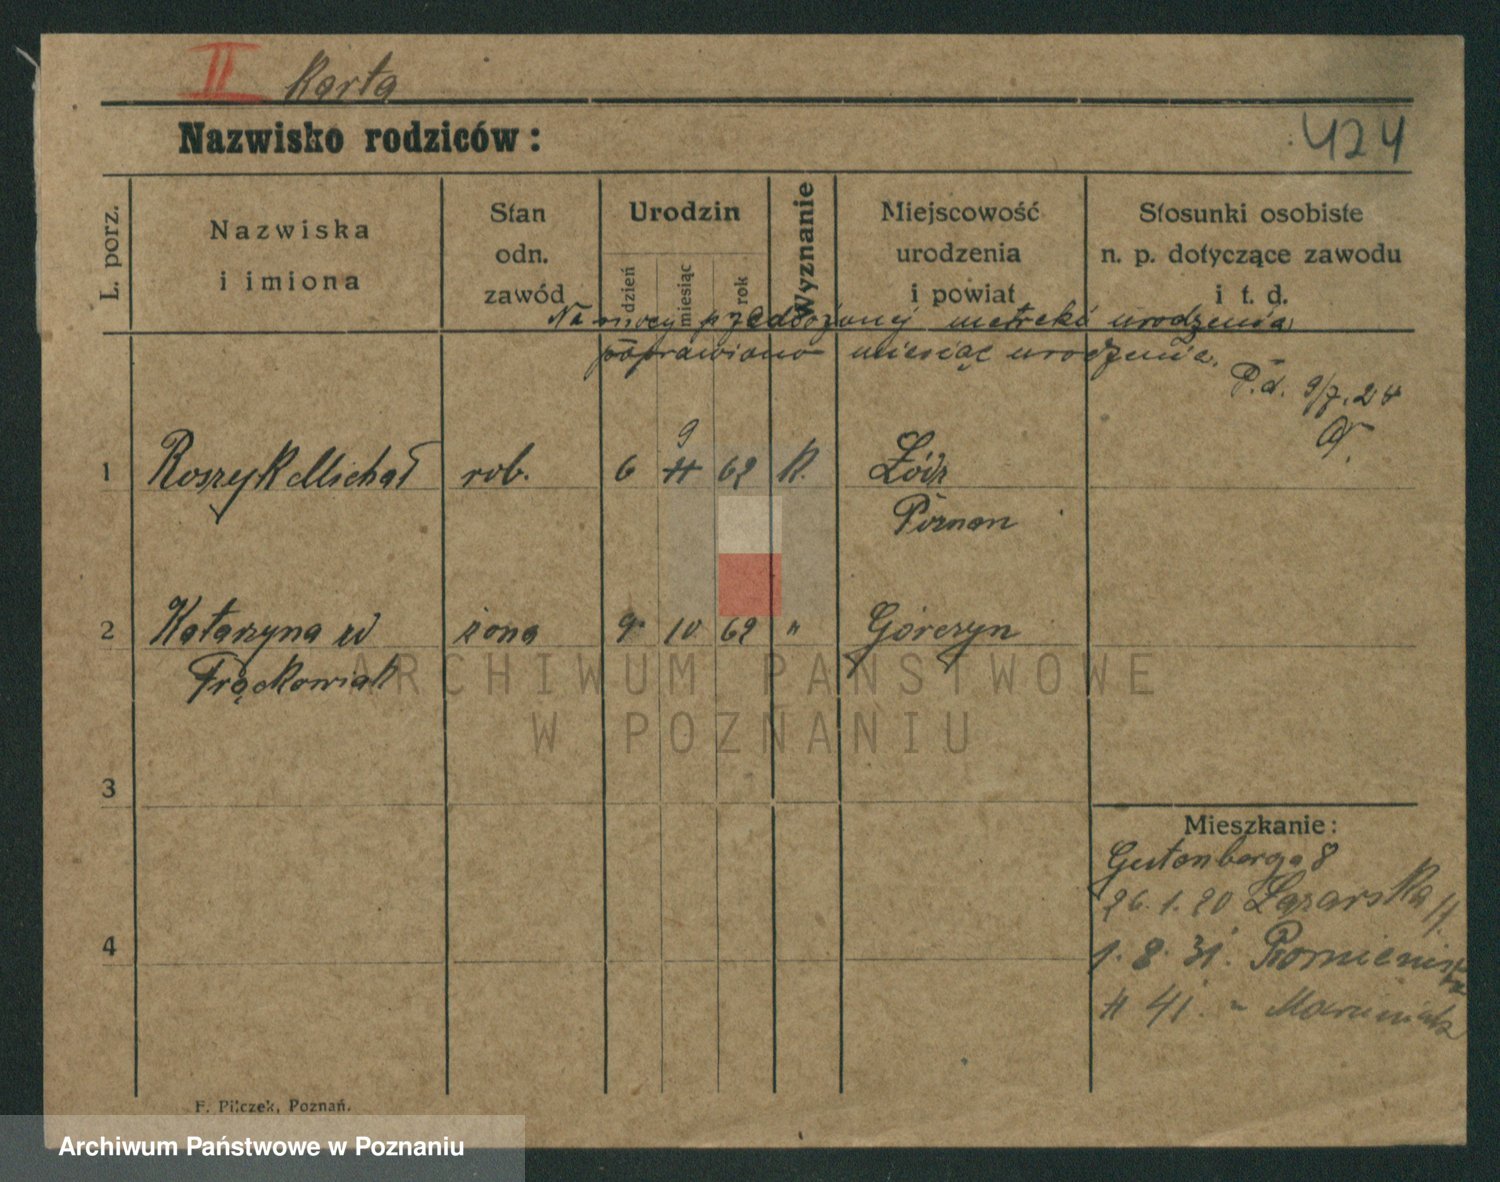 II Karta
Nazwisko rodziców:
424
L. porz.
Nazwiska
i imiona
Stan
odn.
zawód
Urodzin
dzień
miesiąc
rok
Wyznanie
Miejscowość
urodzenia
i powiat
Stosunki osobiste
n. p. dotyczące zawodu
i t. d.
Na mocy przedłożonej metreki urodzenia
poprawiono miesiąc urodzenia.
P.d. 9/7.24
1 Roszyk Michał rob. 6 9 62 K. Łódz
Poznan
2 Katarzyna w żona 9. 10 62 " Górczyn
Frąckowiak
3
4
Mieszkanie:
Gutenberga 8
26.1.20 Łazarska
1.8.31.
41. " Marciniak
F. Pilczek, Poznań.
ARCHIWUM PAŃSTWOWE
W POZNANIU
Archiwum Państwowe w Poznaniu